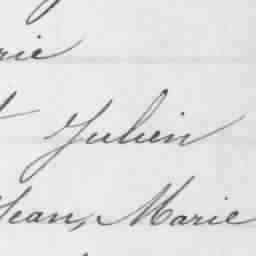 rie
Julien
Jean, Marie